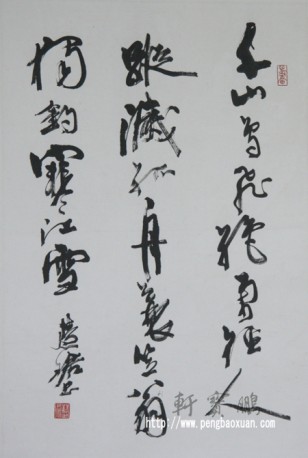 千山鳥飛絕萬徑人
蹤滅孤舟蓑笠翁
獨釣寒江雪
鵬寶軒
http://www.pengbaoxuan.com